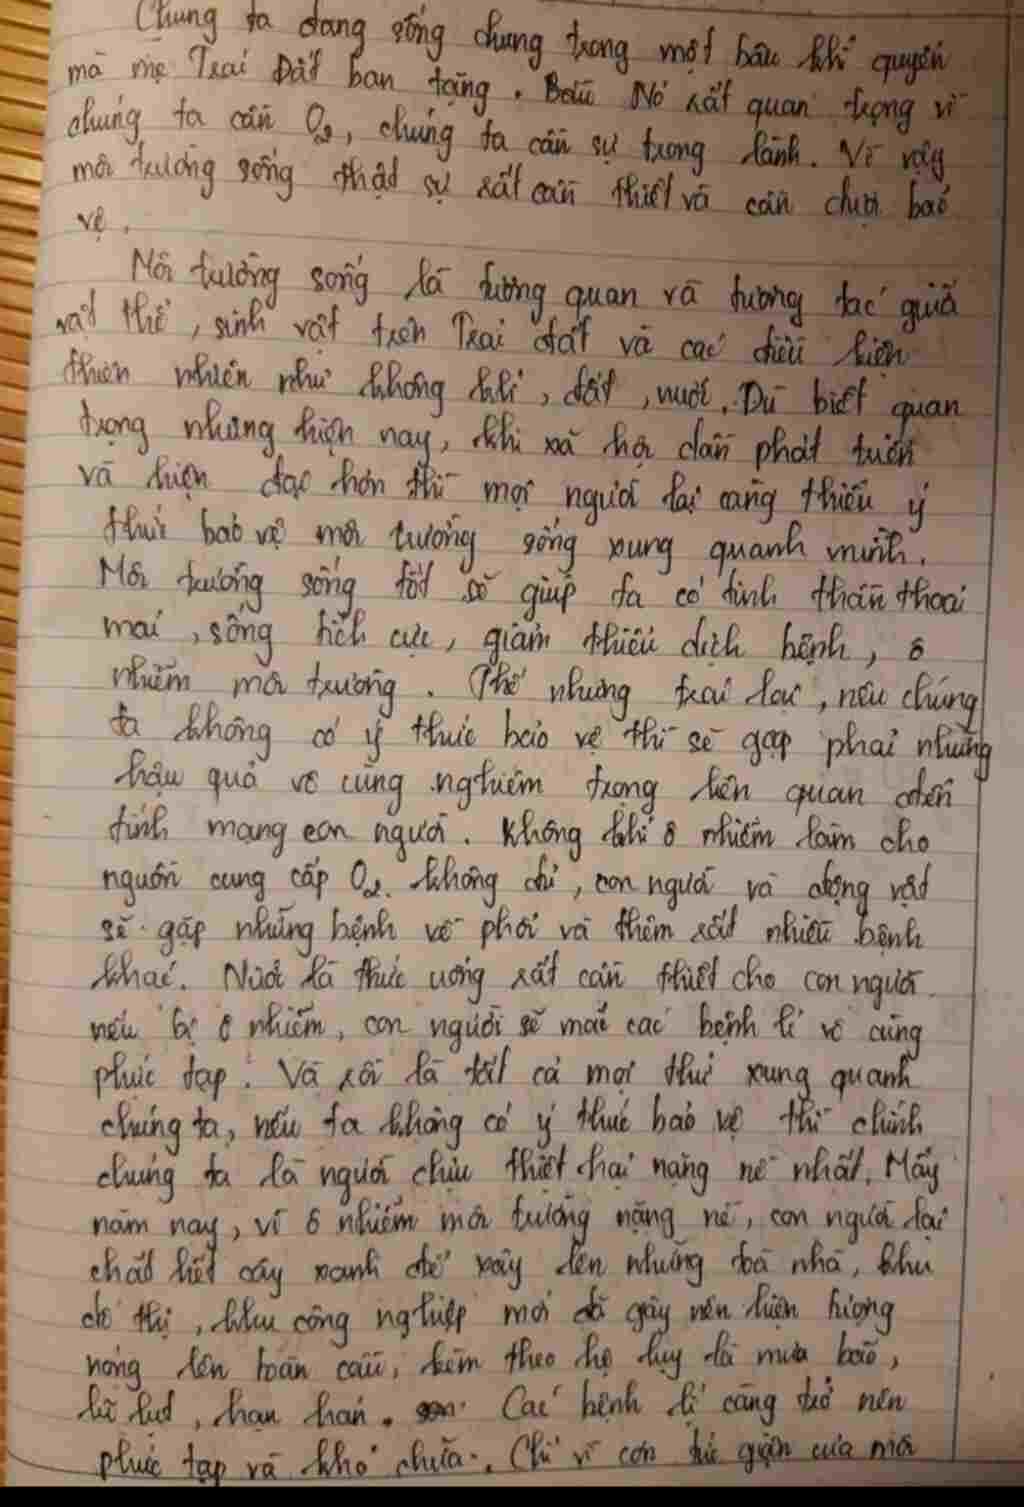 Chúng ta đang sống chung trong một bầu khí quyển
mà mẹ Trái Đất ban tặng. Nó rất quan trọng vì
chúng ta cần O₂, chúng ta cần sự trong lành. Vì vậy
môi trường sống thật sự rất cần thiết và cần được bảo
vệ.
Môi trường sống là tương quan và tương tác giữa
vật thể, sinh vật trên Trái đất và các điều kiện
thiên nhiên như không khí, đất, nước. Dù biết quan
trọng nhưng hiện nay, khi xã hội dần phát triển
và hiện đại hơn thì mọi người lại càng thiếu ý
thức bảo vệ môi trường sống xung quanh mình.
Môi trường sống tốt sẽ giúp ta có tinh thần thoải
mái, sống tích cực, giảm thiểu dịch bệnh, ô
nhiễm môi trường. Thế nhưng trái lại, nếu chúng
ta không có ý thức bảo vệ thì sẽ gặp phải những
hậu quả vô cùng nghiêm trọng liên quan đến
tính mạng con người. Không khí ô nhiễm làm cho
nguồn cung cấp O₂ không chỉ, con người và động vật
sẽ gặp những bệnh về phổi và thêm rất nhiều bệnh
khác. Nước là thức uống rất cần thiết cho con người
nếu bị ô nhiễm, con người sẽ mắc các bệnh lí vô cùng
phức tạp. Và rồi là tất cả mọi thứ xung quanh
chúng ta, nếu ta không có ý thức bảo vệ thì chính
chúng ta là người chịu thiệt hại nặng nề nhất. Mấy
năm nay, vì ô nhiễm môi trường nặng nề, con người lại
chặt hết cây xanh để xây lên những toà nhà, khu
đô thị, khu công nghiệp mới đã gây nên hiện tượng
nóng lên toàn cầu, kèm theo hệ lụy là mưa bão,
lũ lụt, hạn hán. Các bệnh lí càng trở nên
phức tạp và khó chữa. Chỉ vì cơn tức giận của môi